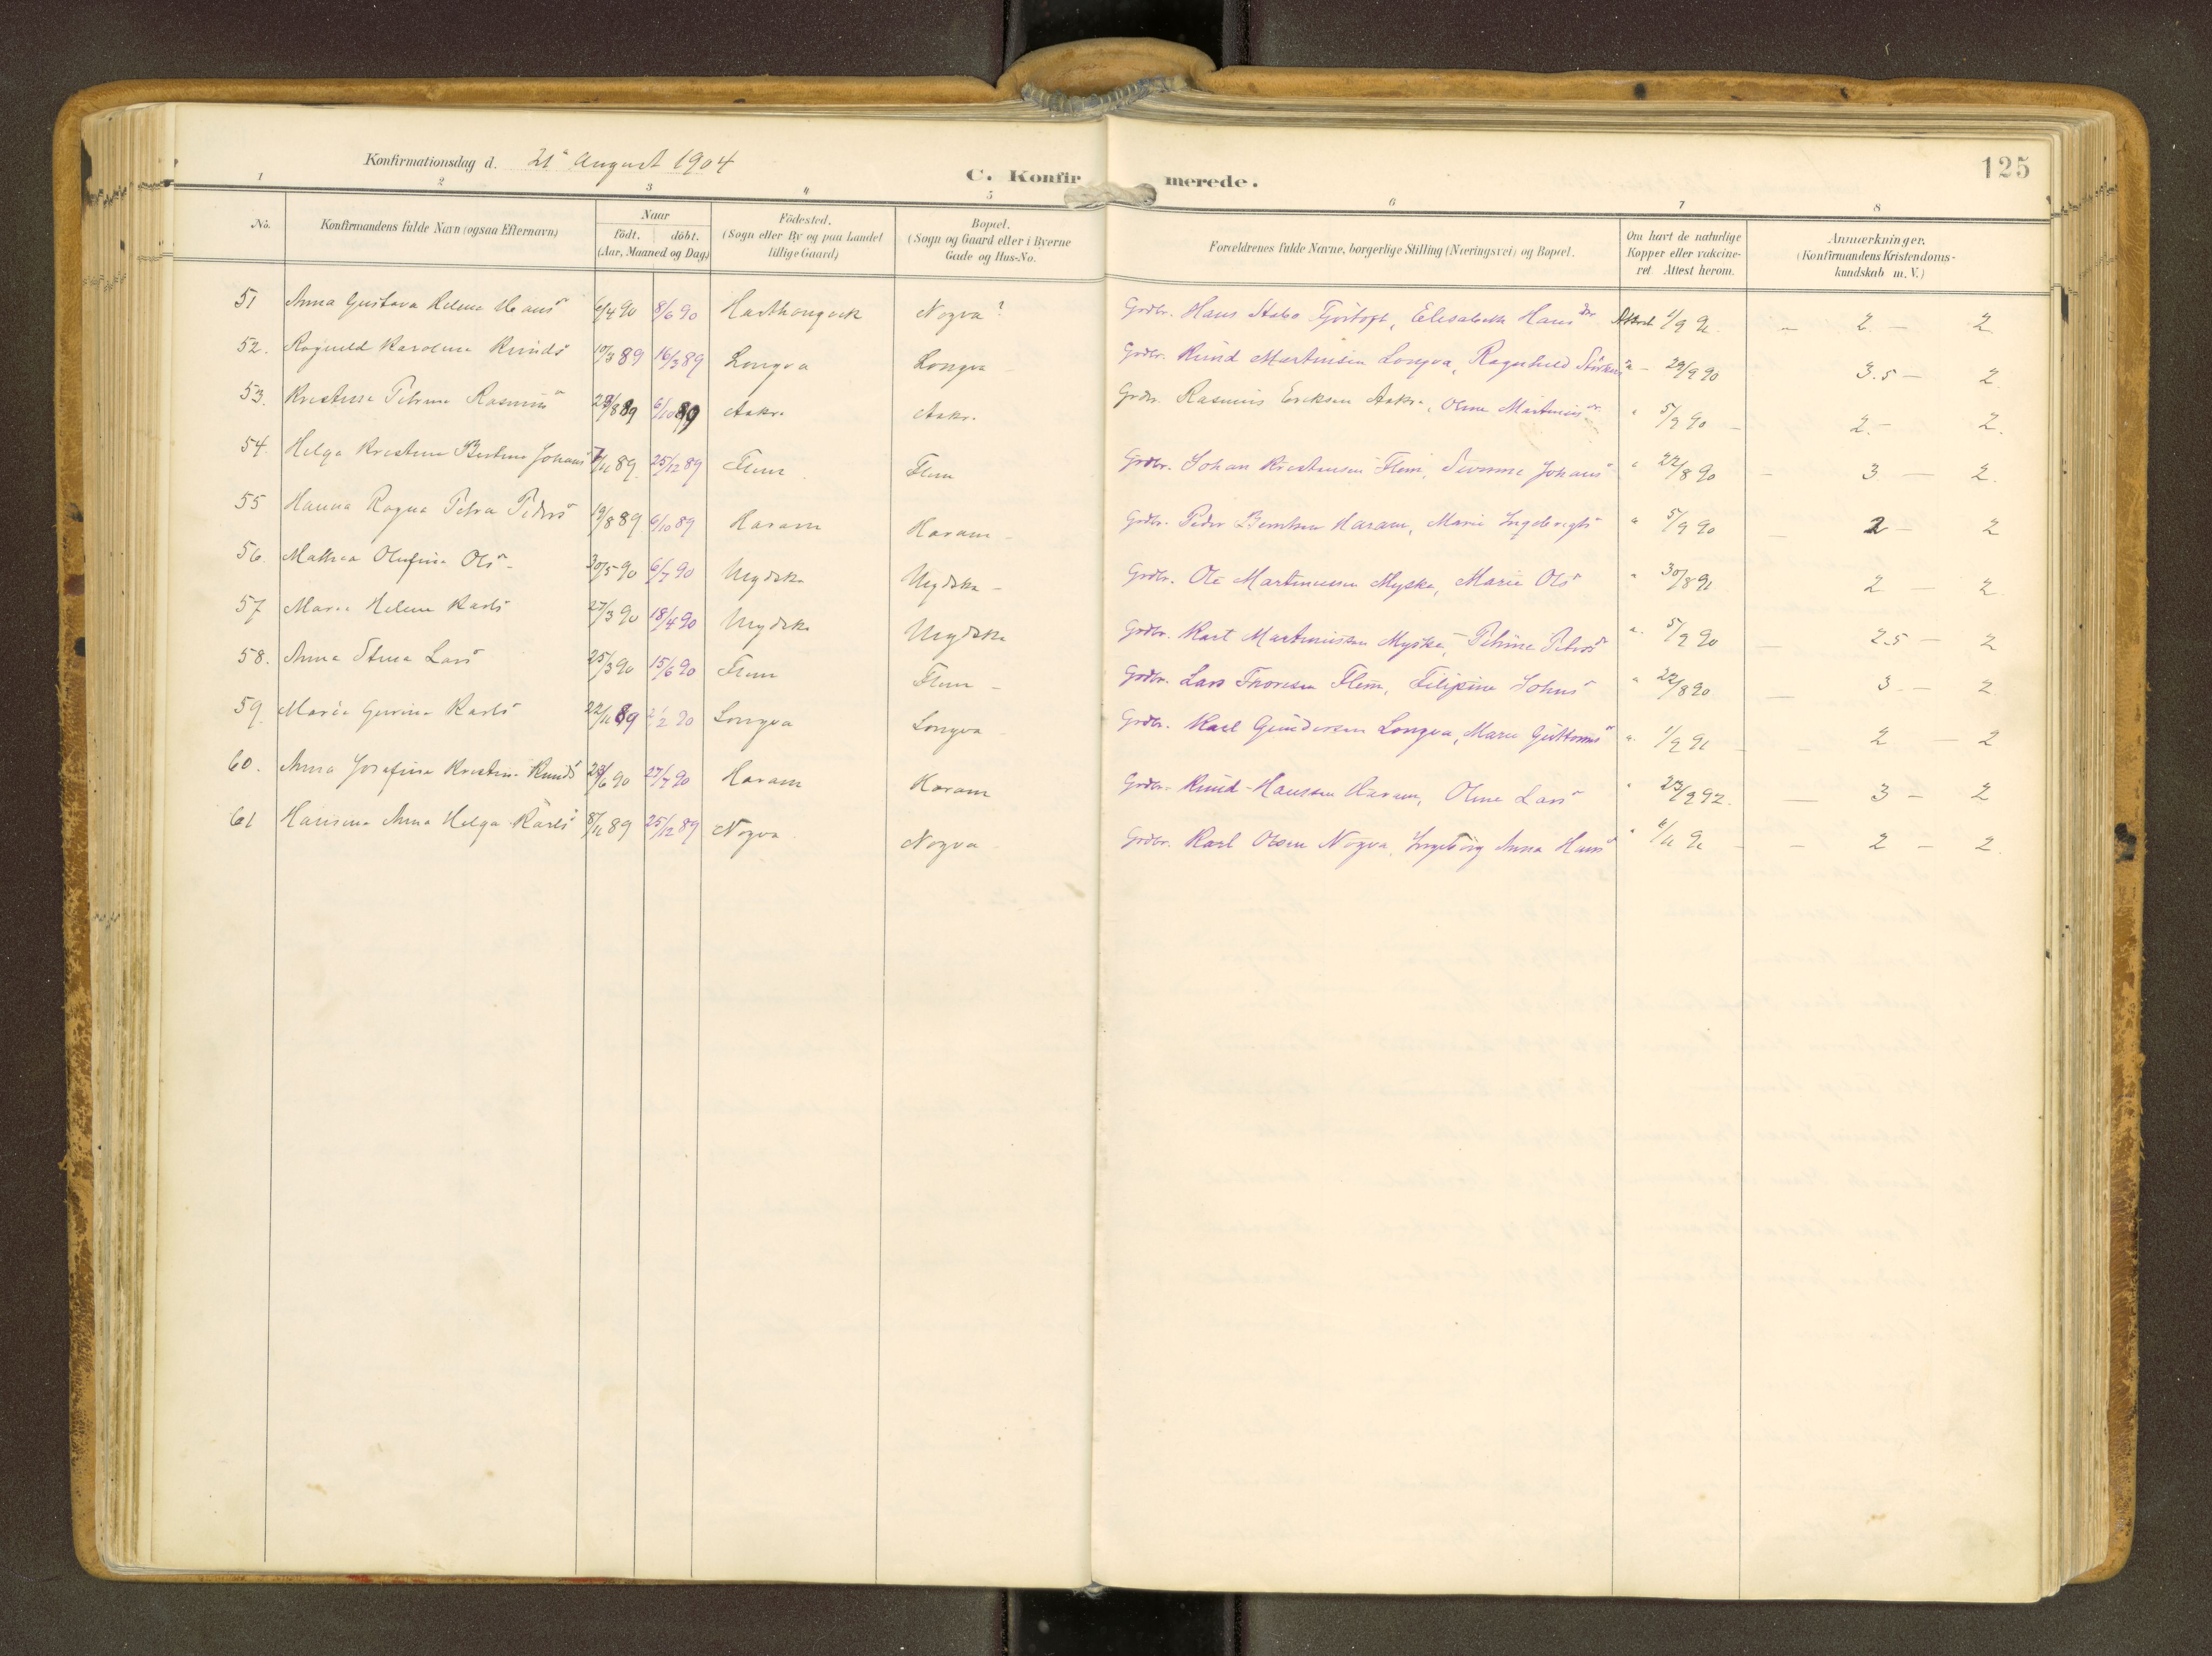 Konfirmationsdag d. 21de August 1904
C. Konfirmerede.
125
1 2 3 4 5 6 7 8
No.
Konfirmandens fulde Navn (ogsaa Efternavn)
Naar
födt. döbt.
(Aar, Maaned og Dag)
Födested.
(Sogn eller By og paa Landet
tillige Gaard)
Bopæl.
(Sogn og Gaard eller i Byerne
Gade og Hus-No.
Forældrenes fulde Navne, borgerlige Stilling (Næringsvei) og Bopæl.
Om havt de naturlige
Kopper eller vakcine-
ret. Attest herom.
Anmærkninger.
(Konfirmandens Kristendoms-
kundskab m. V.)
51 Anna Gustava Helene Hans 6/4 90 8/6 90 Nogva? Grdbr. Hans Elisabeth Hans 1/9 91 - 2 - 2
52. Ragnild Karoline Knuds 10/3 89 16/3 89 Longva Longva Grdbr. Knud Martinsen Longva, Ragnhild 29/9 90 3.5 - 2.
53. Kristine Petrine Rasmus 28/8 89 6/10 89 Aakre Aakre Grdbr. Rasmus Ericksen Aakre, Oline Martinus " 5/9 90 - 2. - 2.
54. Helga Kristine Bertine Johans 7/11 89 25/12 89 Flem Flem Grdbr. Johan Kristensen Flem, Johans " 22/8 90 - 3 - 2.
55 Hanna Ragna Petra Peders 19/8 89 6/10 89 Haram Haram - Grdbr. Peder Berntsen Haram, Marie Ingebrigts " 5/9 90 - 2 - 2
56. Mathea Olufine Ols - 30/5 90 6/7 90 Mydske Mydske - Grdbr. Ole Martinussen Myske, Marie Ols " 30/8 91 2 - 2
57 Marie Helene Karls 27/3 90 18/4 90 Mydske Mydske Grdbr. Karl Martinussen Myske, Petrine Peters " 5/9 90 - 2.5 - 2
58. Anna Stina Lars 25/3 90 15/6 90 Flem Flem - Grdbr. Lars Thoresen Flem, Filipine Johns " 22/8 90 - 3 - 2
59. Marie Gurine Karls 22/11 89 2/2 90 Longva Longva Grdbr. Karl Gundersen Longva, Marie Guttorms " 1/9 91 - - 2 - 2
60. Anna Josefine Kristine Knuds 28/6 90 27/7 90 Haram Haram Grdbr. Knud Hanssen Haram, Oline Lars " 23/9 92. - 3 - 2
61 Hansine Anna Helga Karls 8/11 89 25/12 89 Nogva Nogva Grdbr. Karl Olsen Nogva, Ingeborg Anna Hans " - - 2 - 2.